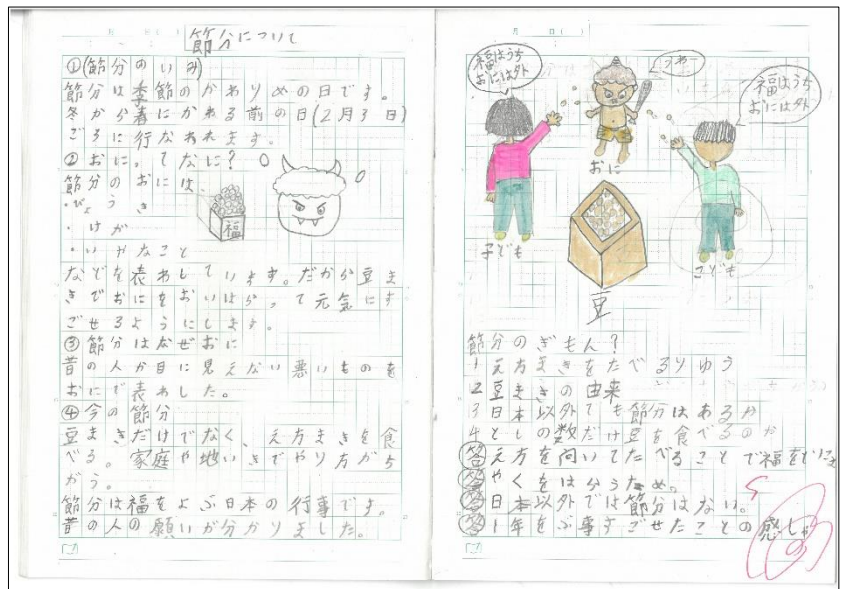 節分について
①(節分のいみ)
節分は季節のかわりめの日です。
冬から春にかわる前の日(2月3日)
ごろに行なわれます。
②おに。てなに?
節分のおには、
・びょうき
・けが
・いやなこと
などを表わしています。だから豆ま
きでおにをおいはらって元気にす
ごせるようにします。
③節分はなぜおに
昔の人が目に見えない悪いものを
おにで表わした。
④今の節分
豆まきだけでなく、え方まきを食
べる。家庭や地いきでやり方がち
がう。
節分は福をよぶ日本の行事です。
昔の人の願いが分かりました。
福
月 日( )
福はうち
おには外
うわー
福はうち
おには外
おに
子ども
こども
豆
節分のぎもん?
1 え方まきをたべるりゆう
2 豆まきの由来
3 日本以外でも節分はあるか
4 としの数だけ豆を食べるのか
答え方を向いてたべることで福を
答やくをはらうため。
答日本以外では節分はない。
答1年をぶ事すごせたことの感しゃ